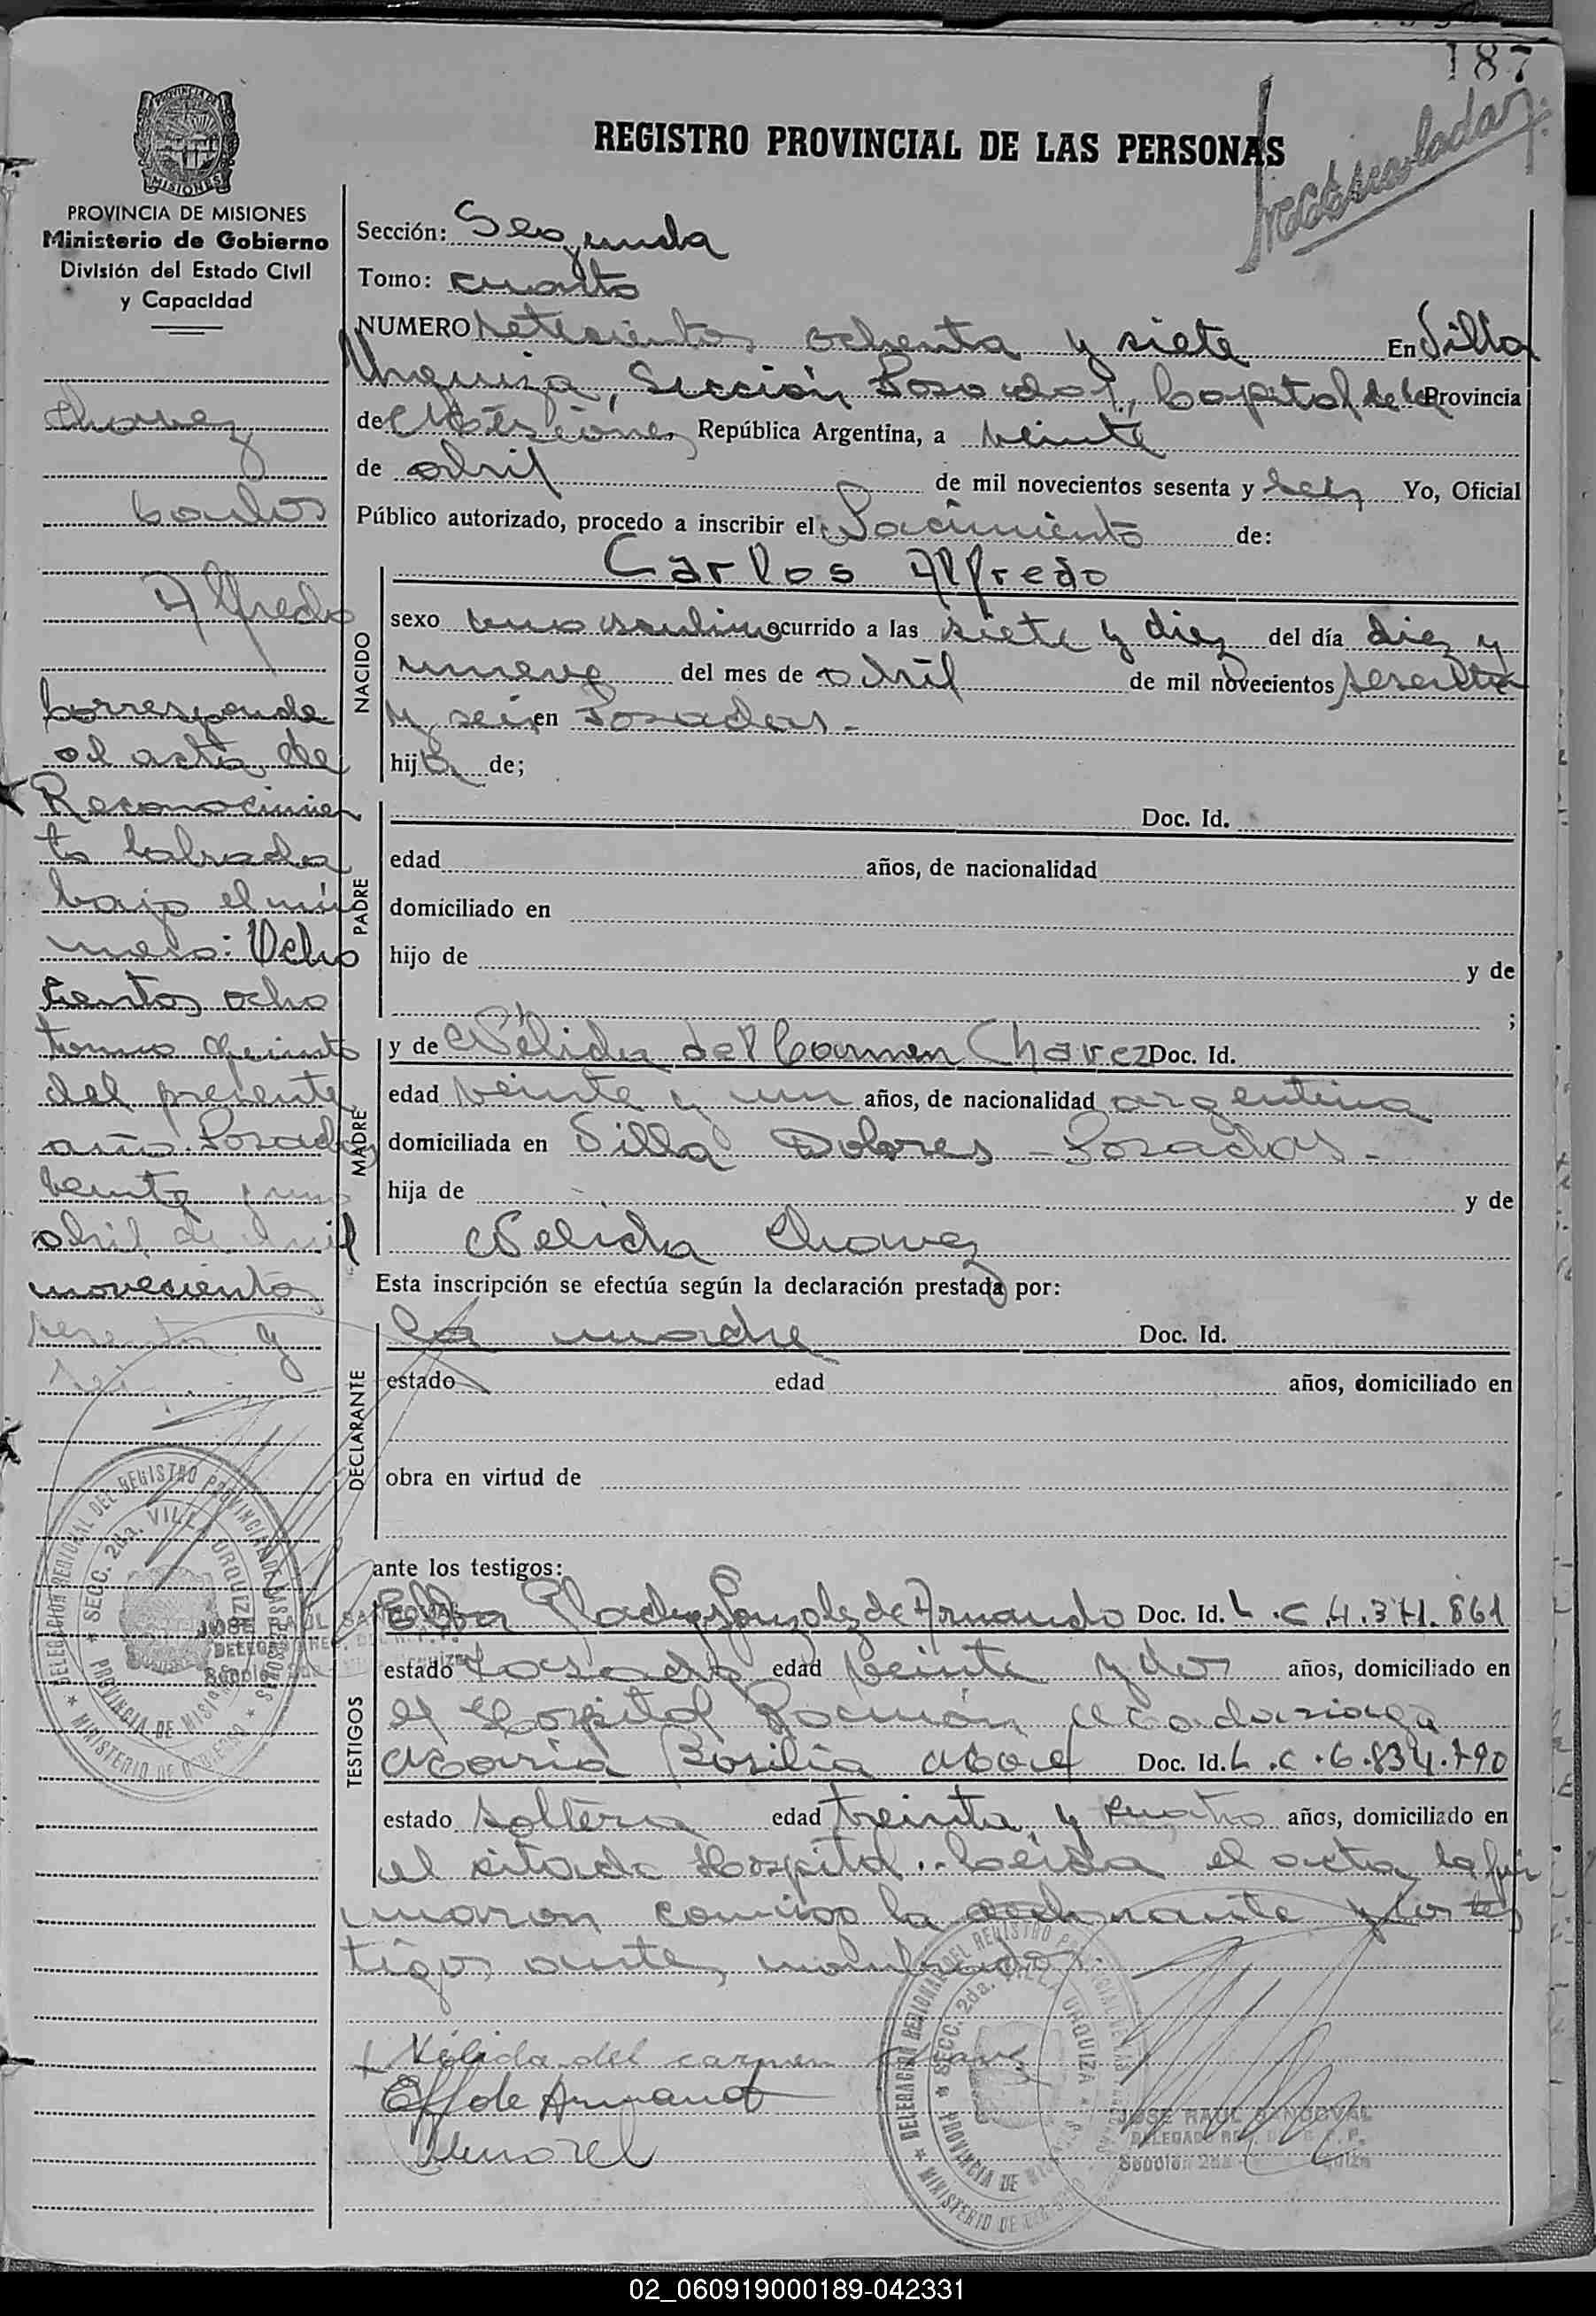 187
Matriculado
REGISTRO PROVINCIAL DE LAS PERSONAS
PROVINCIA DE MISIONES
Ministerio de Gobierno
División del Estado Civil
y Capacidad
Chavez
Carlos
Alfredo
Corresponde
al acta de
Reconocimien
to labrada
bajo el nú
mero: Ocho
cientos ocho
tomo quinto
del presente
año. Posadas
veinte y uno
abril de mil
novecientos
sesenta y
seis.
Sección: Segunda
Tomo: cuarto
NUMERO setecientos ochenta y siete En Villa
Urquiza, Sección Posadas, Capital de la Provincia
de Misiones República Argentina, a veinte
de abril de mil novecientos sesenta y seis Yo, Oficial
Público autorizado, procedo a inscribir el Nacimiento de:
Carlos Alfredo
NACIDO
sexo masculino ocurrido a las siete y diez del día diez y
nueve del mes de abril de mil novecientos sesenta
y seis en Posadas.-
hijo de;
PADRE
Doc. Id.
edad años, de nacionalidad
domiciliado en
hijo de y de
;
MADRE
y de Nélida del Carmen Chavez Doc. Id.
edad veinte y un años, de nacionalidad argentina
domiciliada en Villa Dolores - Posadas -
hija de y de
Nelida Chavez
Esta inscripción se efectúa según la declaración prestada por:
DECLARANTE
la madre Doc. Id.
estado edad años, domiciliado en
obra en virtud de
ante los testigos:
TESTIGOS
Elba Gladys Gonzalez de Armando Doc. Id. L.C.4.371.861
estado casada edad veinte y dos años, domiciliado en
el Hospital Ramón Madariaga
Maria Rosilia Morel Doc. Id. L.C.6.834.790
estado soltera edad treinta y cuatro años, domiciliado en
el citado Hospital.- Leida el acta la fir
maron conmigo la declarante y los tes
tigos antes nombrados.
Nélida del carmen Chavez
EG de Armando
Morel
DELEGACION REGIONAL DEL REGISTRO PROVINCIAL DE LAS PERSONAS
SECC. 2da. VILLA URQUIZA
PROVINCIA DE MISIONES
MINISTERIO DE GOBIERNO
JOSE RAUL SANDOVAL
DELEGADO REG. DEL R. P. P.
Sección 2da. Villa Urquiza
02_060919000189-042331